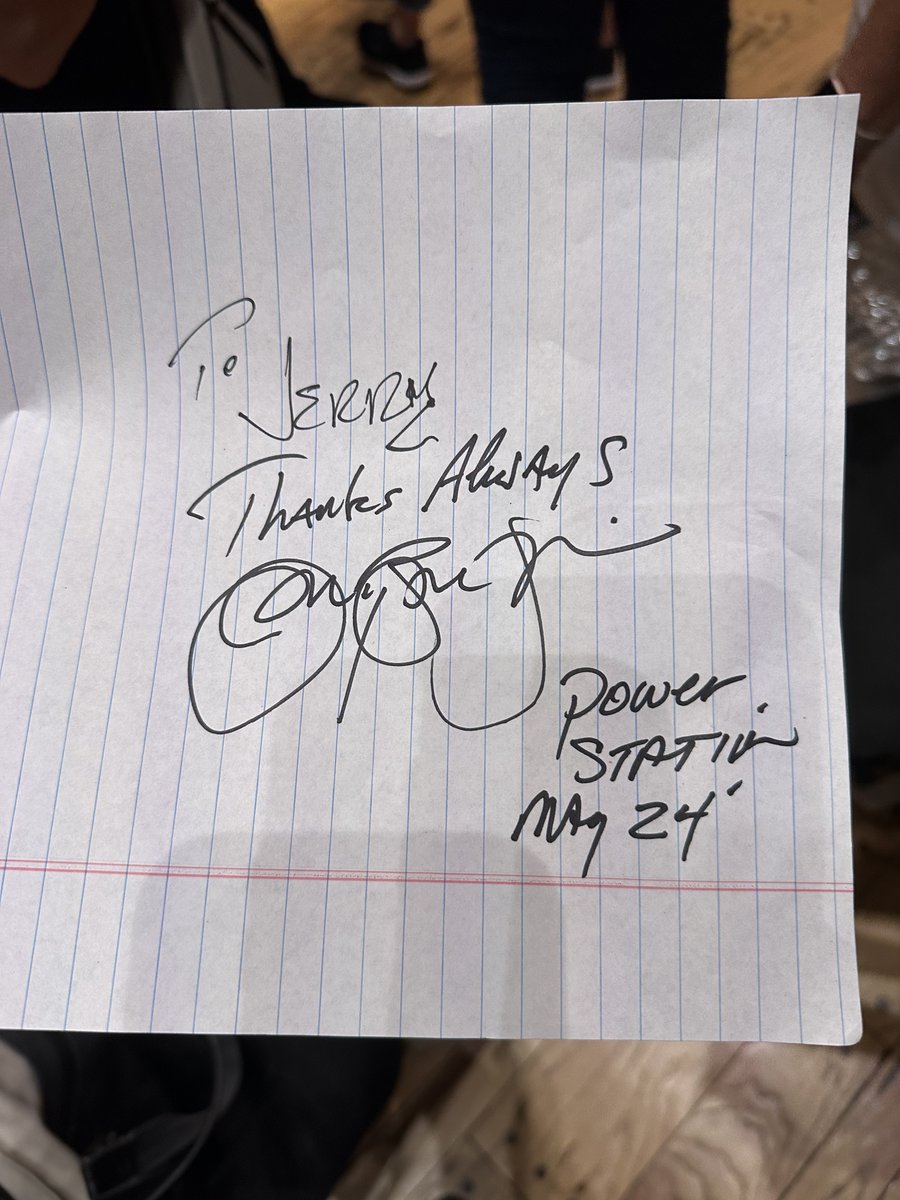 To JERRY
THANKS ALWAYS
Power
STATION
MAy 24'